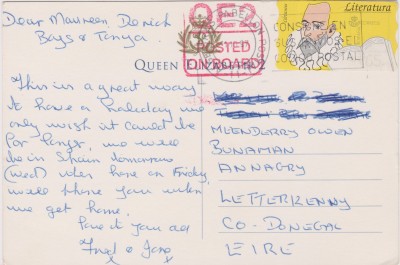 Dear Maureen Derick
Boys & Tanya
This is a great way
to have a holiday we
only wish it could be
for longer, we will
be in Spain tomorrow
(wed) then home on Friday,
will phone you when
we get home.
Love to you all
Fred & Jane
POSTED
ON BOARD
QUEEN ELIZABETH 2
Literatura
CONS
SU
CO POSTAL
MULNDERRY OWEN
BUNAMAN
ANNAGRY
LETTERKENNY
CO-DONEGAL
EIRE